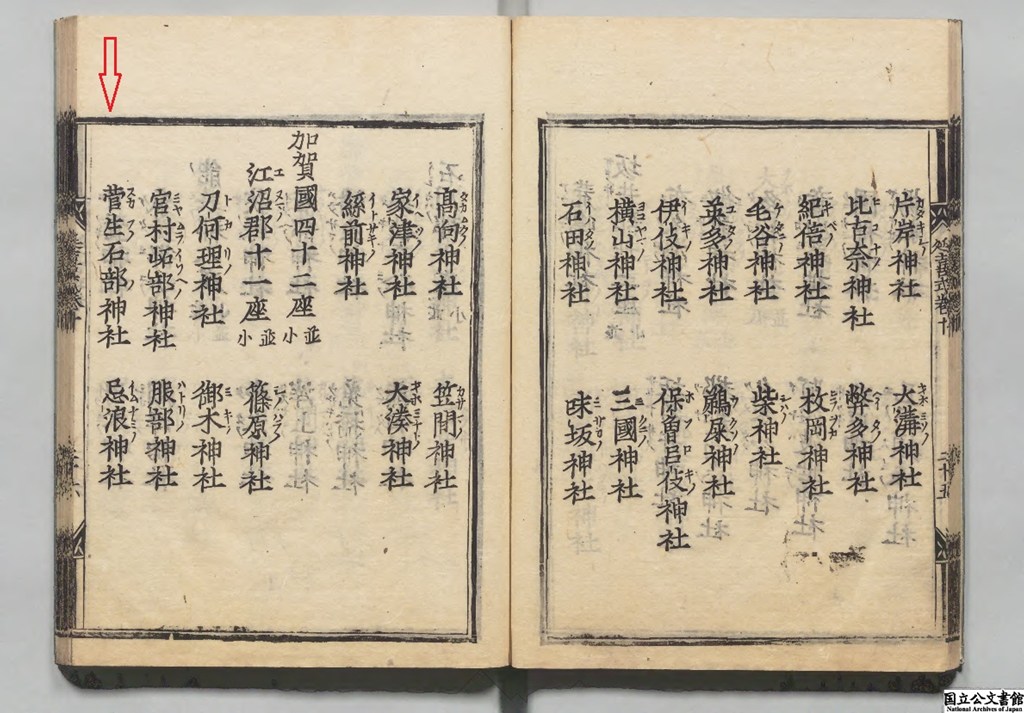 片岸神社 大溝神社
比古奈神社 弊多神社
紀倍神社 枚岡神社
毛谷神社 柴神社
英多神社 鵜屎神社
伊伎神社 保曾呂伎神社
横山神社 三國神社
石田神社 味坂神社
延喜式卷十
二十五
髙向神社 小 笠間神社
家津神社 大湊神社
絲前神社
加賀國四十二座 並小
江沼郡十一座 並小 篠原神社
刀何理神社 御木神社
宮村𡶌部神社 服部神社
菅生石部神社 忌浪神社
国立公文書館
National Archives of Japan